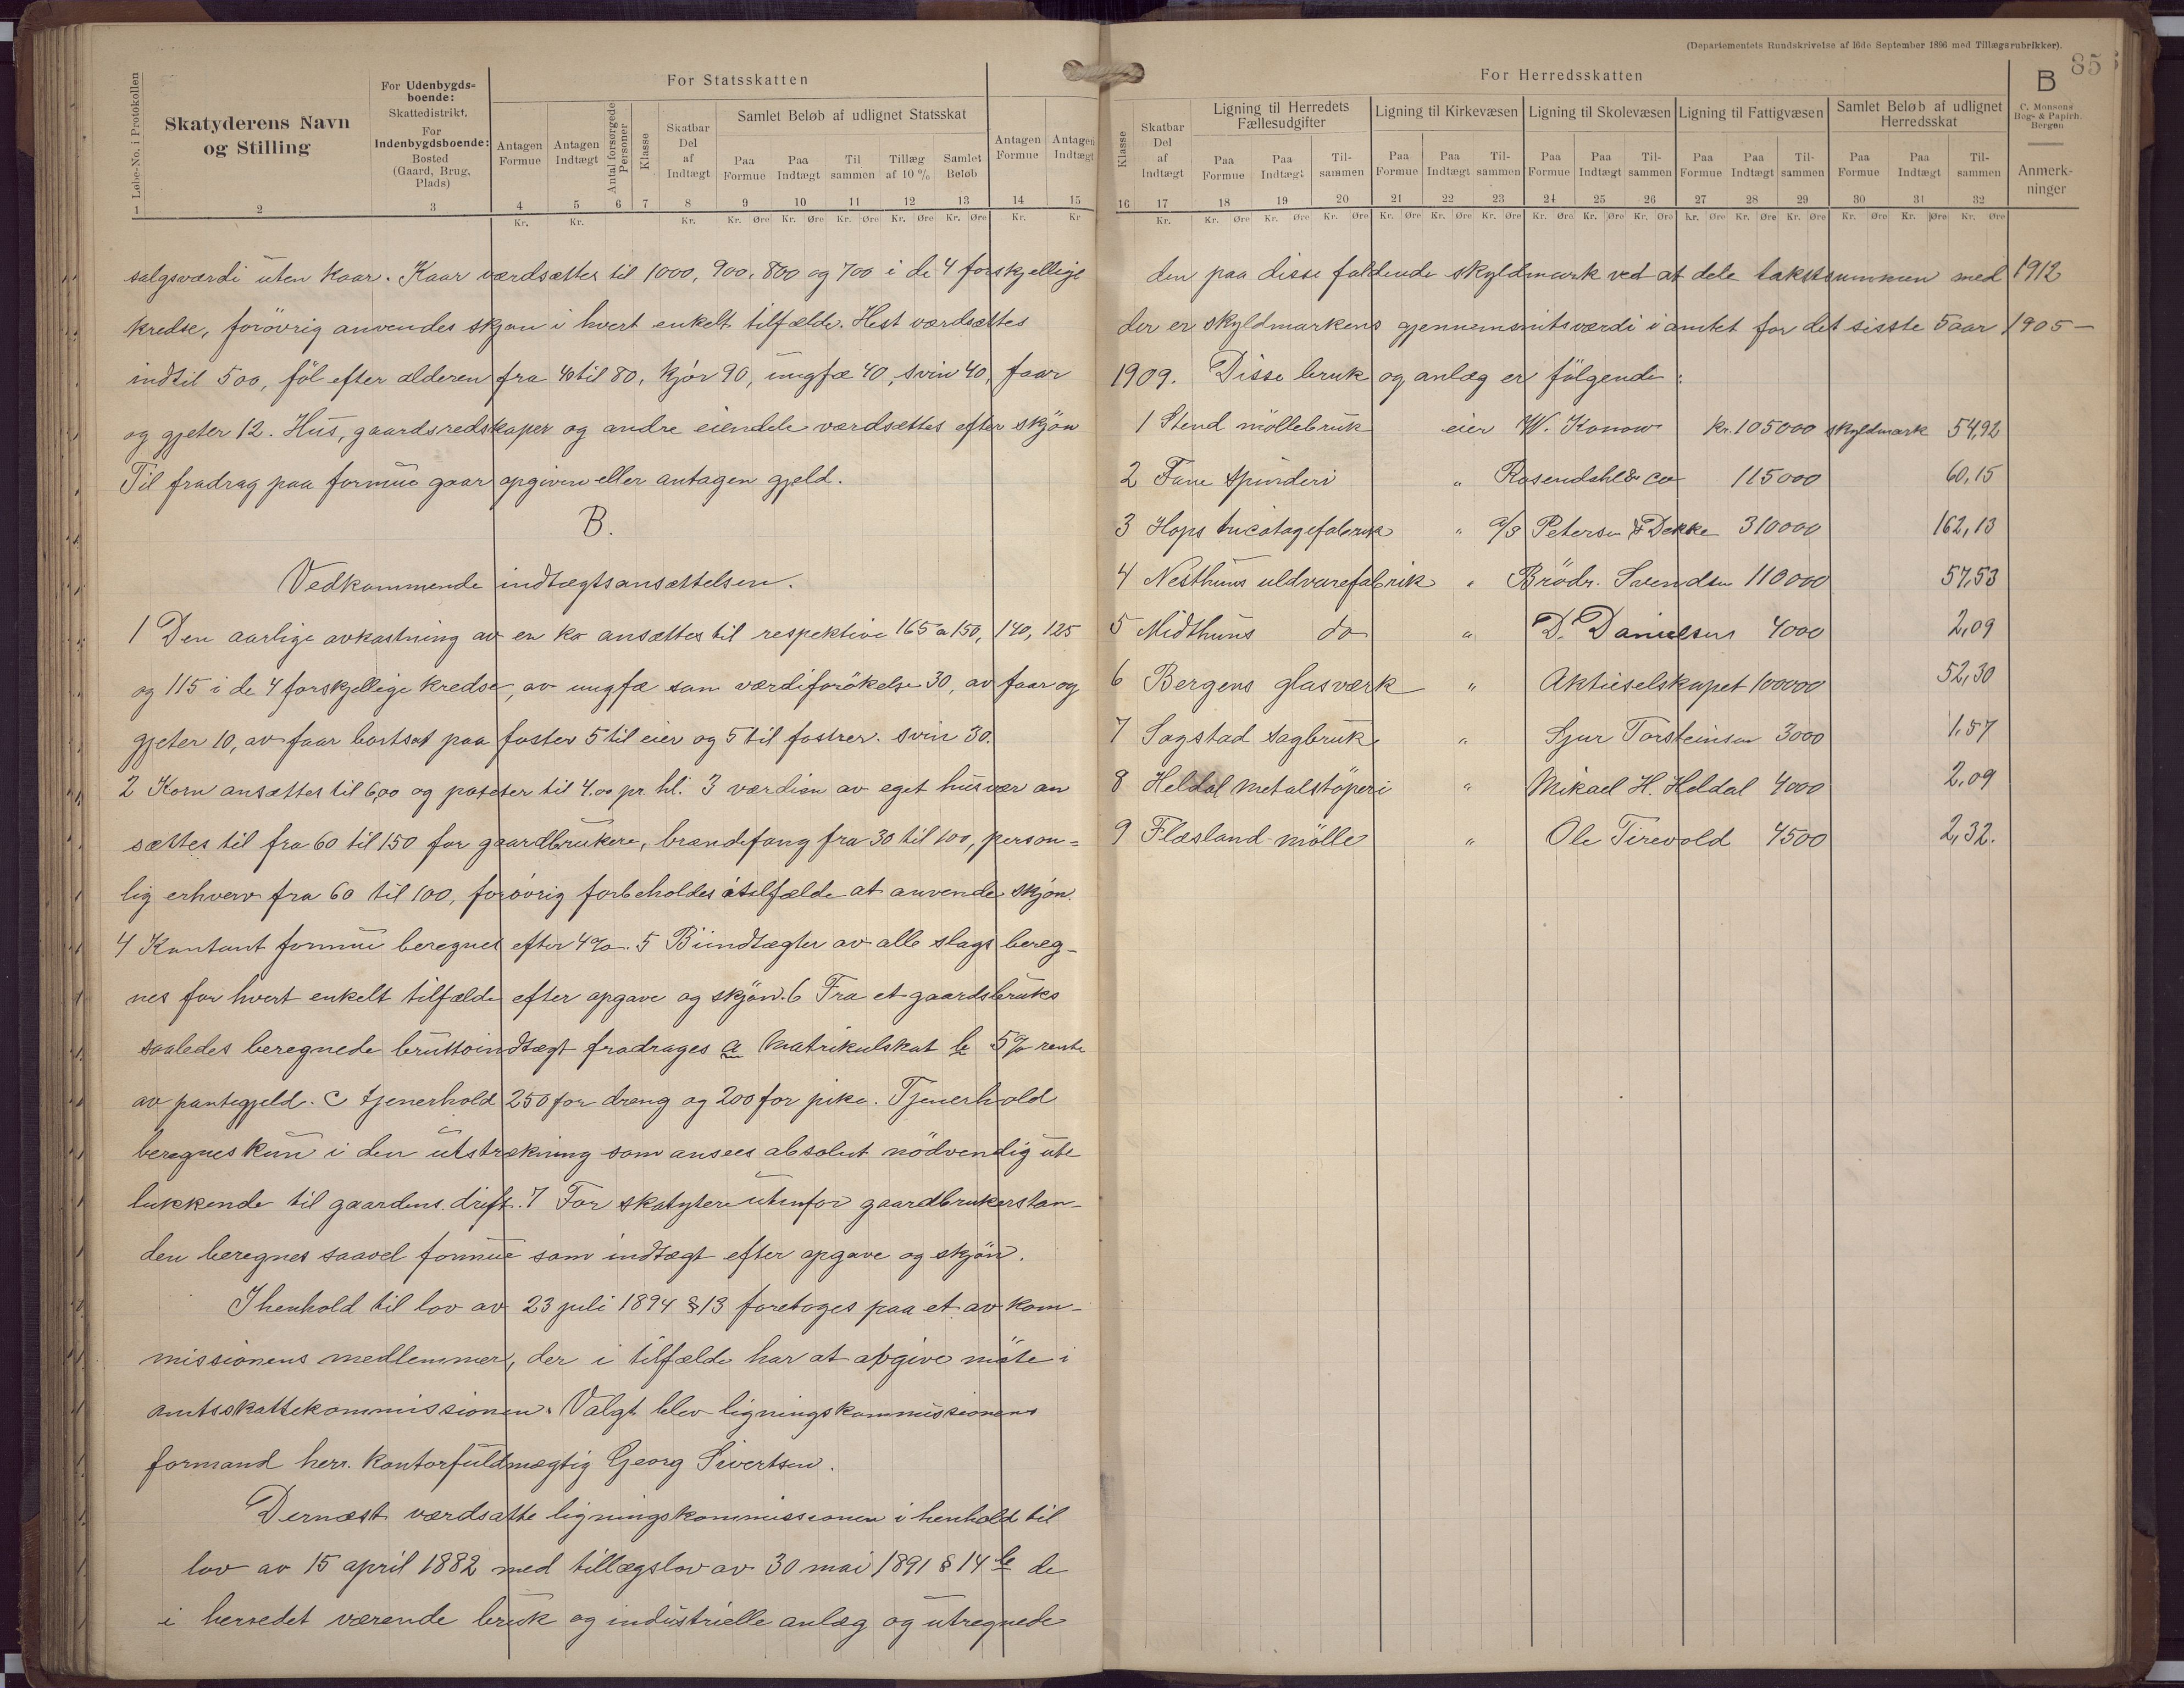 (Departementets Rundskrivelse af 16de September 1896 med Tillægsrubrikker).
85
Løbe-No. i Protokollen
Skatyderens Navn og Stilling
For Udenbygdsboende: Skattedistrikt.
For Indenbygdsboende: Bosted (Gaard, Brug, Plads)
For Statsskatten
Antagen Formue
Antagen Indtægt
Antal forsørgede Personer
Klasse
Skatbar Del af Indtægt
Samlet Beløb af udlignet Statsskat
Paa Formue
Paa Indtægt
Til sammen
Tillæg af 10 %
Samlet Beløb
Antagen Formue
Antagen Indtægt
1 2 3 4 5 6 7 8 9 10 11 12 13 14 15
Kr. Kr. Kr. Kr. Øre Kr. Øre Kr. Øre Kr. Øre Kr. Øre Kr. Kr
salgsværdi uten kaar. Kaar værdsættes til 1000, 900, 800 og 700 i de 4 forskjellige
kredse, forövrig anvendes skjøn i hvert enkelt tilfælde. Hest værdsættes
indtil 500, föl efter alderen fra 40 til 80, kjör 90, ungfæ 40, svin 40, faar
og gjeter 12. Hus, gaardsredskaper og andre eiendele værdsættes efter skjön
Til fradrag paa formue gaar opgiven eller antagen gjeld.
B.
Vedkommende indtægtsansættelsen.
1 Den aarlige avkastning av en ko ansættes til respektive 165 a 150, 140, 125
og 115 i de 4 forskjellige kredse, av ungfæ som værdiforökelse 30, av faar og
gjeter 10, av faar bortsat paa foster 5 til eier og 5 til fostrer. svin 30.
2 Korn ansættes til 6,00 og poteter til 4.00 pr. hl. 3 værdien av eget husvær an
sættes til fra 60 til 150 for gaardbrukere, brændefang fra 30 til 100, person=
lig erhverv fra 60 til 100, forövrig forbeholdes i tilfælde at anvende skjön.
4 Kontant formue beregnes efter 4%. 5 Biindtægter av alle slags bereg-
nes for hvert enkelt tilfælde efter opgave og skjön. 6 Fra et gaardsbruks
saaledes beregnede bruttoindtægt fradrages a Matrikulskat b 5% rente
av pantegjeld. c tjenerhold 250 for dreng og 200 for pike. Tjenerhold
beregnes kun i den utstrækning som ansees absolut nödvendig ute
lukkende til gaardens drift. 7 For skatytere utenfor gaardbrukerstan-
den beregnes saavel formue som indtægt efter opgave og skjön.
I henhold til lov av 23 juli 1894 § 13 foretoges paa et av kom-
missionens medlemmer, der i tilfælde har at avgive möte i
amtsskattekommissionen. Valgt blev ligningskommissionens
formand herr. kontorfuldmægtig Georg Sivertsen.
Dernæst værdsatte ligningskommissionen i henhold til
lov av 15 april 1882 med tillægslov av 30 mai 1891 § 14 b de
i herredet værende bruk og industrielle anlæg og utregnede
For Herredsskatten
Klasse
Skatbar Del af Indtægt
Ligning til Herredets Fællesudgifter
Ligning til Kirkevæsen
Ligning til Skolevæsen
Ligning til Fattigvæsen
Samlet Beløb af udlignet Herredsskat
B
C. Monsens Bog- & Papirh. Bergen
Anmerkninger
Paa Formue Paa Indtægt Til-sammen Paa Formue Paa Indtægt Til-sammen Paa Formue Paa Indtægt Til-sammen Paa Formue Paa Indtægt Til-sammen Paa Formue Paa Indtægt Til-sammen
16 17 18 19 20 21 22 23 24 25 26 27 28 29 30 31 32
Kr. Kr. Øre Kr. Øre Kr. Øre Kr. Øre Kr. Øre Kr. Øre Kr. Øre Kr. Øre Kr. Øre Kr. Øre Kr. Øre Kr. Øre Kr. Øre Kr. Øre Kr. Øre
den paa disse faldende skyldmark ved at dele takstsummen med 1912
der er skyldmarkens gjennemsnitsværdi i amtet for det sisste 5 aar 1905-
1909. Disse bruk og anlæg er fölgende:
1 Stend möllebruk eier W. Konow Kr. 105000 skyldmark 54,92
2 Fane Spinderi " Rosendahl & Co 115000 60,15
3 Hops tricotagefabrik " A/S Petersen & Dekke 310000 162,13
4 Nesthuns uldvarefabrik " Brödr. Svendsen 110000 57,53
5 Midthuns do " D. Danielsen 4000 2,09
6 Bergens glasværk " Aktieselskapet 100000 52,30
7 Sagstad sagbruk " Sjur Torsteinsen 3000 1,57
8 Heldal metalstöperi " Mikael H. Heldal 4000 2,09
9 Flæsland mölle " Ole Tirevold 4500 2,32.